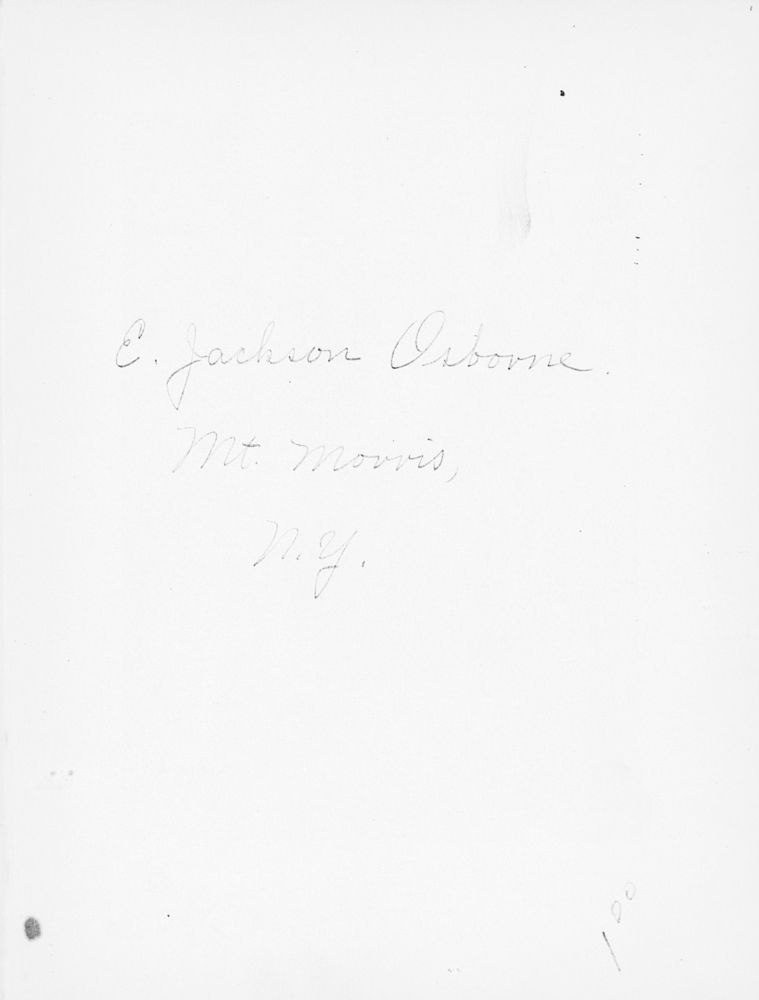 E. Jackson Osborne.
Mt. Morris,
N.Y.
1.00